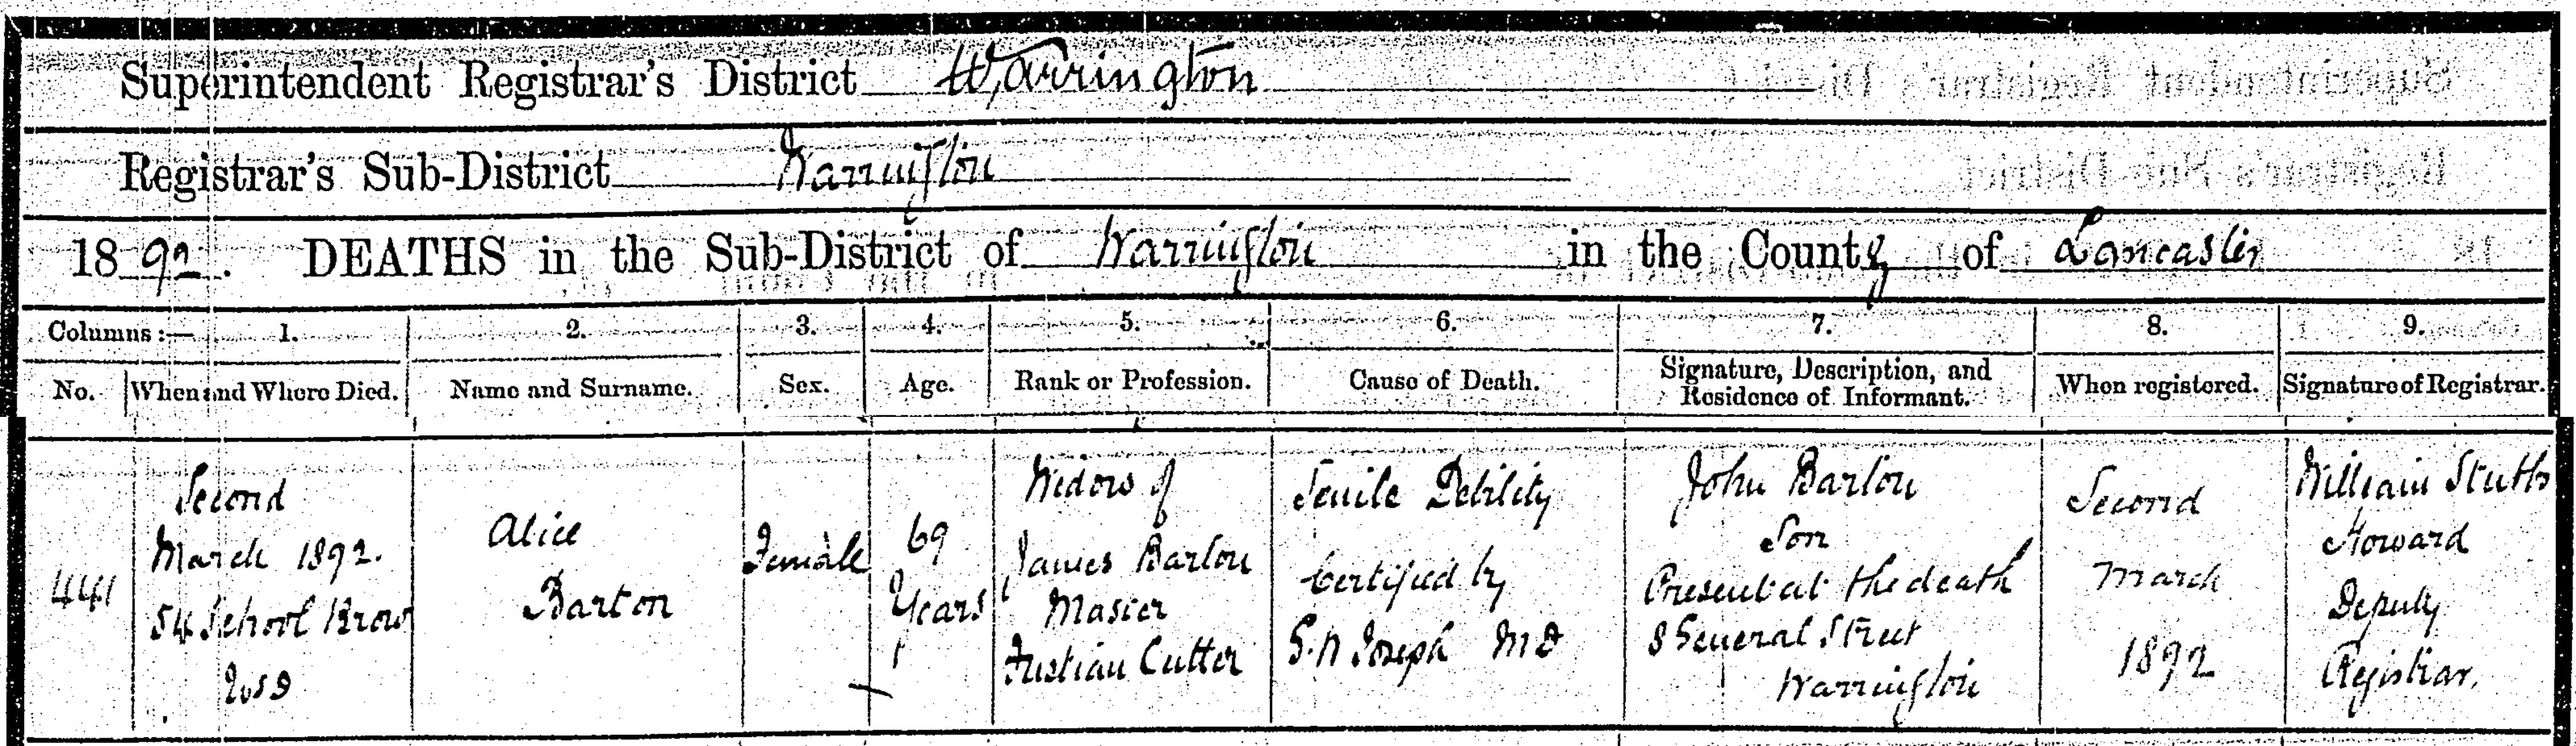 Superintendent Registrar's District Warrington
Registrar's Sub-District Warrington
1892. DEATHS in the Sub-District of Warrington in the County of Lancaster
Columns :— 1. 2. 3. 4. 5. 6. 7. 8. 9.
No. When and Where Died. Name and Surname. Sex. Age. Rank or Profession. Cause of Death. Signature, Description, and Residence of Informant. When registered. Signature of Registrar.
441
Second
March 1892.
54 School Brow
USD
Alice
Barton
Female
69
Years
Widow of
James Barton
Master
Fustian Cutter
Senile Debility
Certified by
Joseph MD
John Barton
Son
Present at the death
8 General Street
Warrington
Second
March
1892
William Stubbs
Howard
Deputy
Registrar.